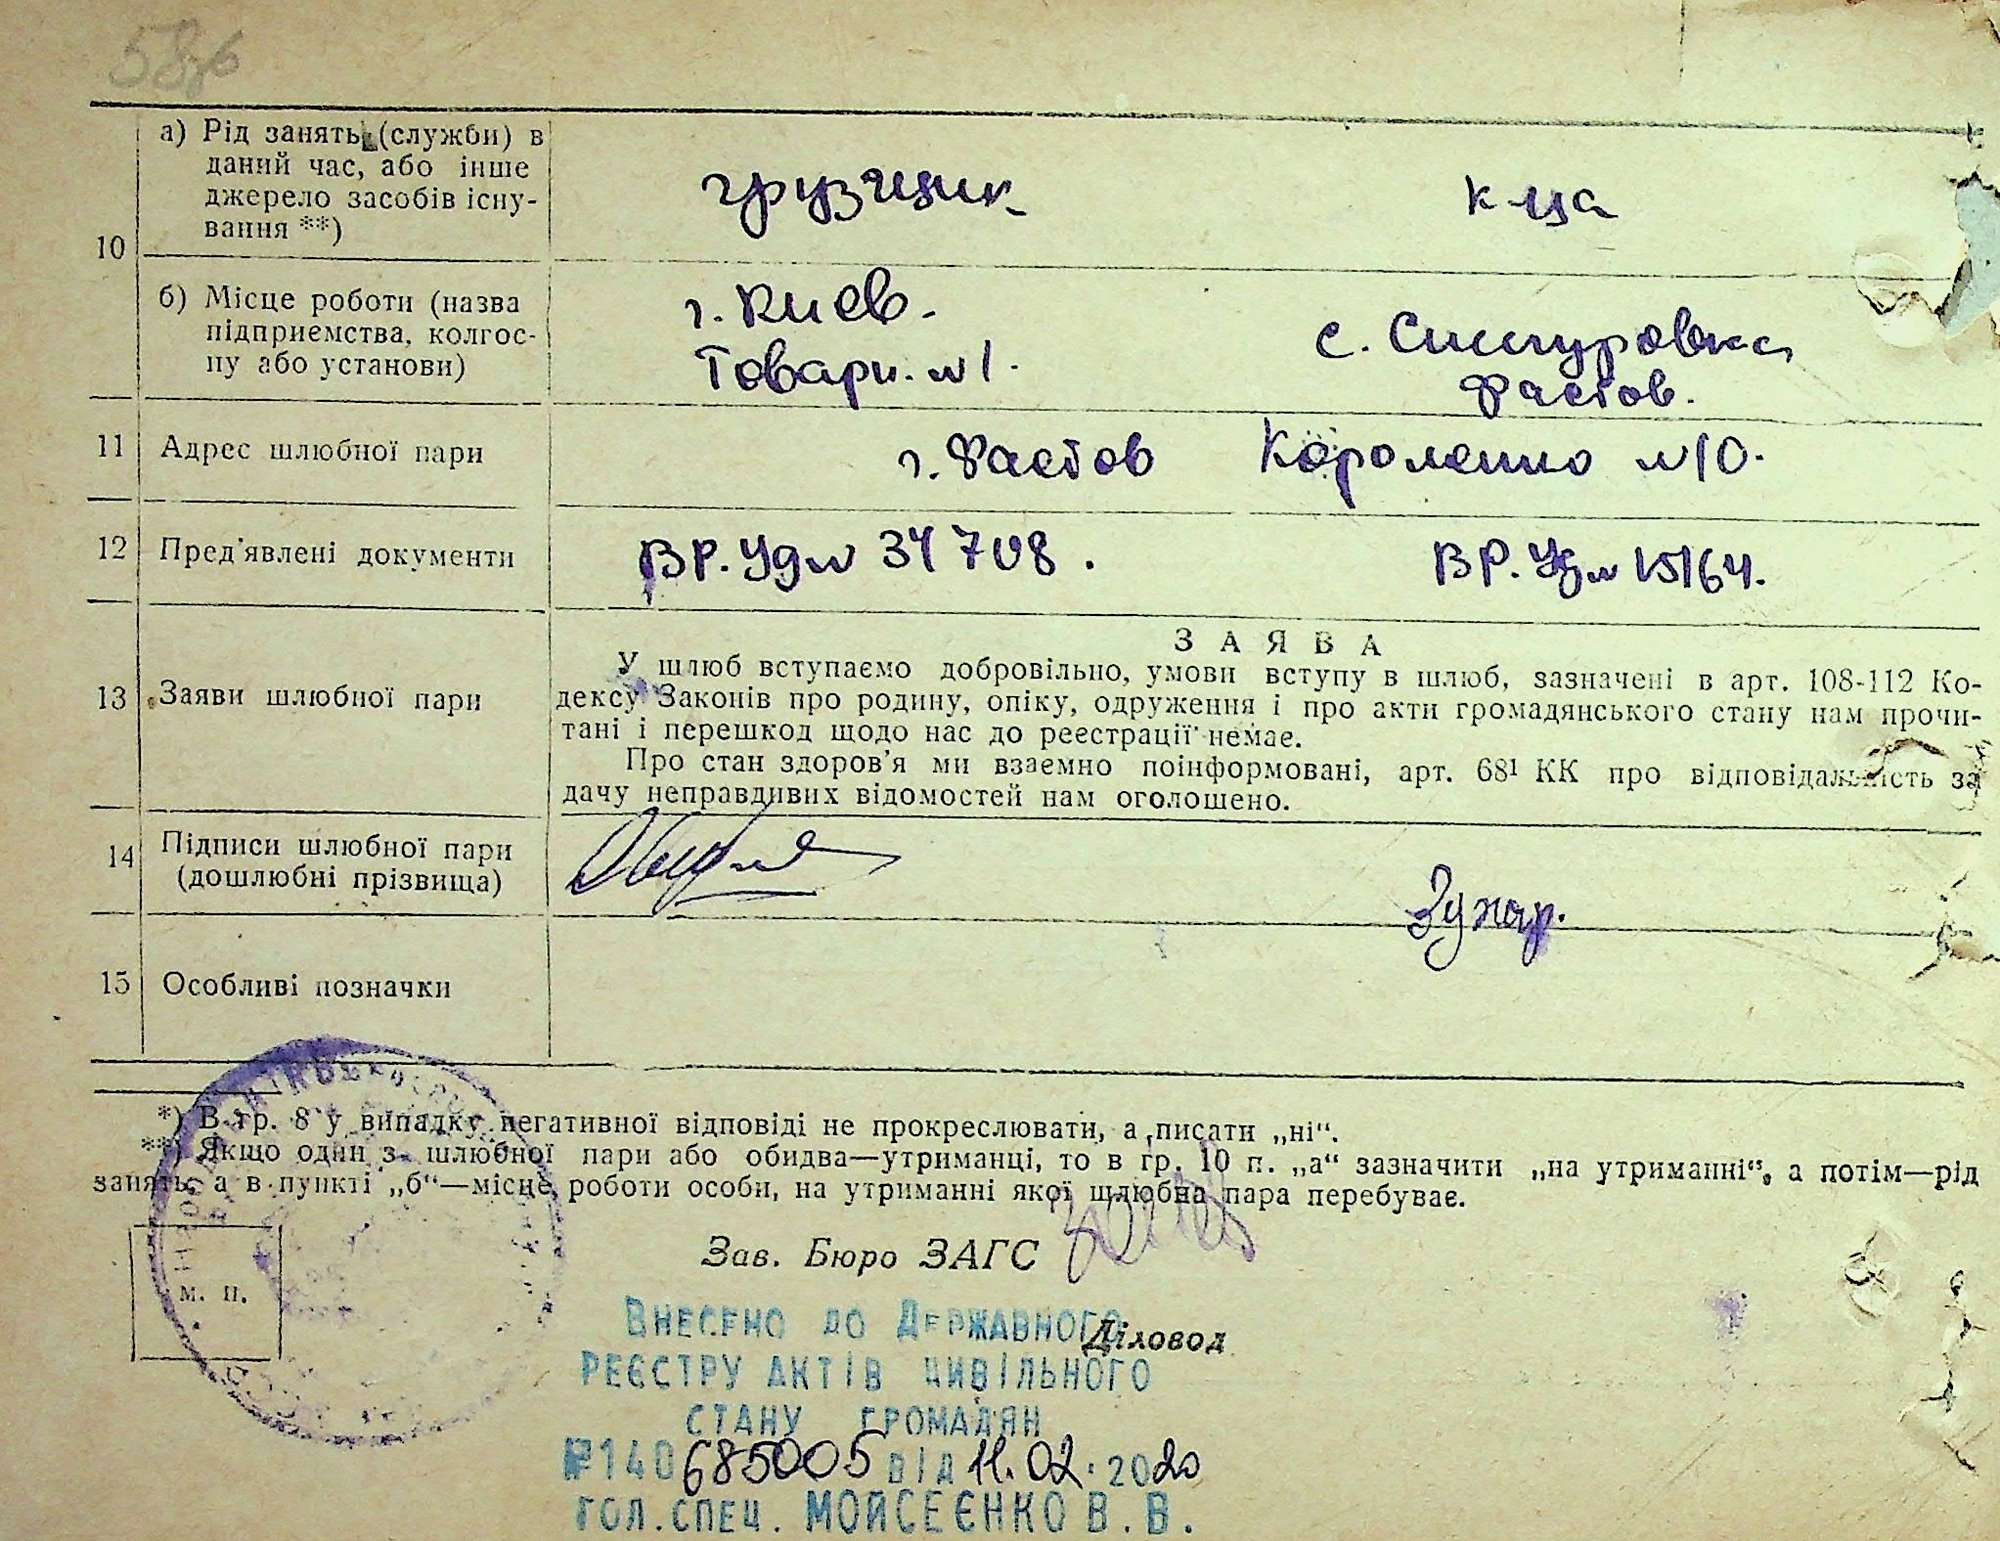 58
10
а) Рід занять (служби) в
даний час, або інше
джерело засобів існу-
вання **)
грузчик
к-ца
б) Місце роботи (назва
підприємства, колгос-
пу або установи)
г. Киев.
Товарн. №1.
с. Снегуровка
Фастов.
11 Адрес шлюбної пари
г. Фастов Короленко №10.
12 Пред'явлені документи
ВР. Уд № 34708.
ВР. Уд № 15164.
13 Заяви шлюбної пари
ЗАЯВА
У шлюб вступаємо добровільно, умови вступу в шлюб, зазначені в арт. 108-112 Ко-
дексу Законів про родину, опіку, одруження і про акти громадянського стану нам прочи-
тані і перешкод щодо нас до реєстрації немає.
Про стан здоров'я ми взаємно поінформовані, арт. 68¹ КК про відповідальність за
дачу неправдивих відомостей нам оголошено.
14 Підписи шлюбної пари
(дошлюбні прізвища)
15 Особливі позначки
*) В гр. 8 у випадку негативної відповіді не прокреслювати, а писати „ні“.
**) Якщо один з шлюбної пари або обидва—утриманці, то в гр. 10 п. „а“ зазначити „на утриманні“, а потім—рід
занять, а в пункті „б“—місце роботи особи, на утриманні якої шлюбна пара перебуває.
м. п.
Зав. Бюро ЗАГС
Діловод
ВНЕСЕНО ДО ДЕРЖАВНОГО
РЕЄСТРУ АКТІВ ЦИВІЛЬНОГО
СТАНУ ГРОМАДЯН
№140685005 ВІД 11.02.2020
ГОЛ.СПЕЦ. МОЙСЕЄНКО В.В.